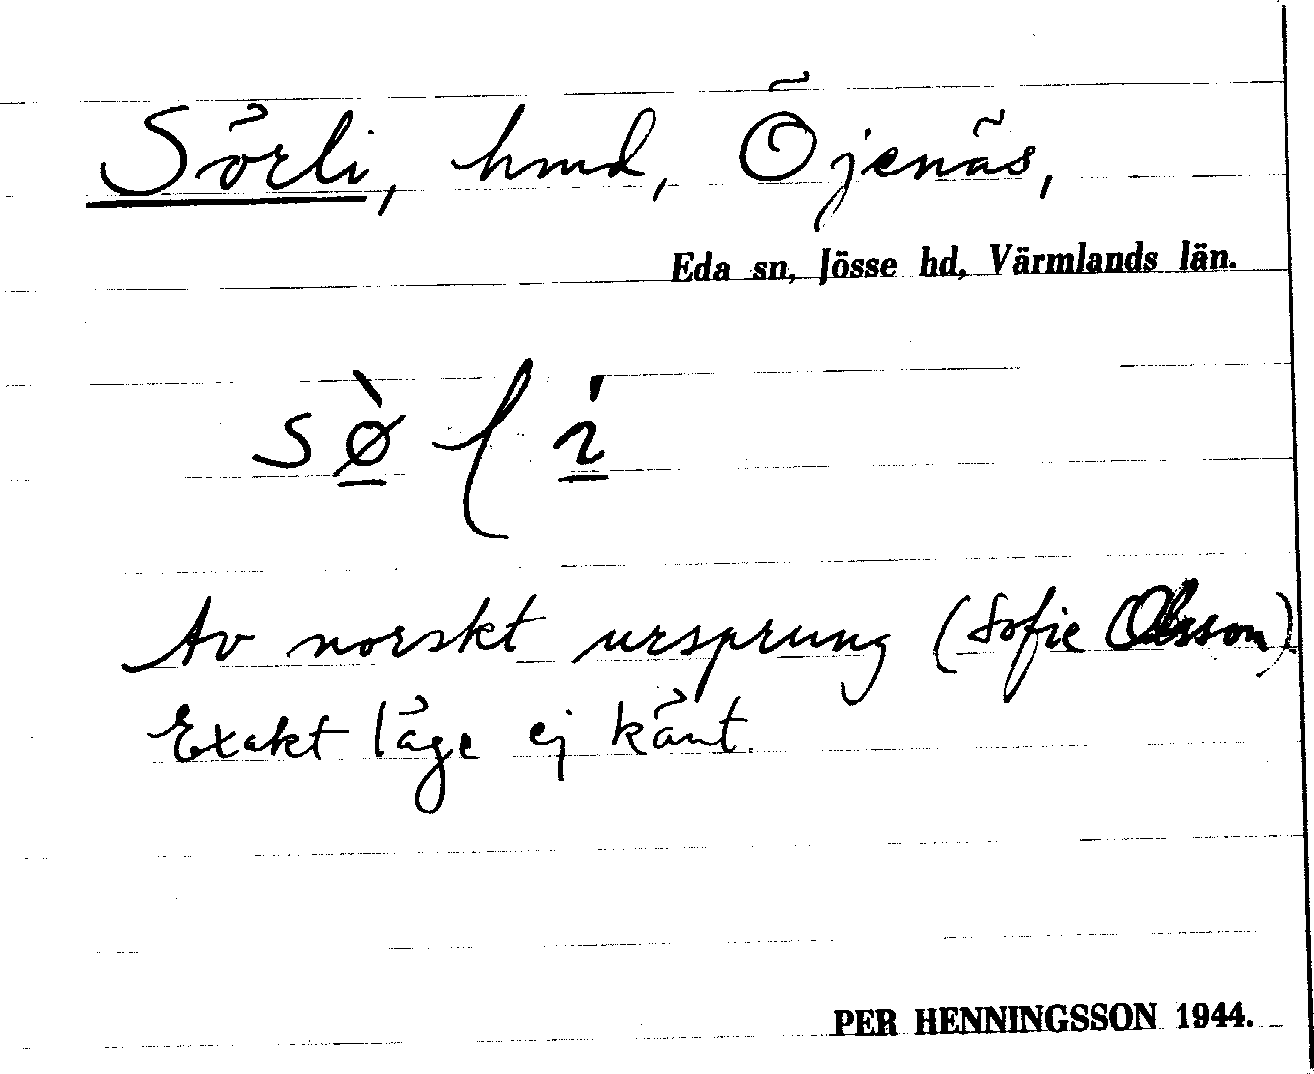 Sörli, hmd, Öjenäs,
Eda sn, Jösse hd, Värmlands län.
sø̀ɭi
Av norskt ursprung (Sofie Olsson).
Exakt läge ej känt.
PER HENNINGSSON 1944.